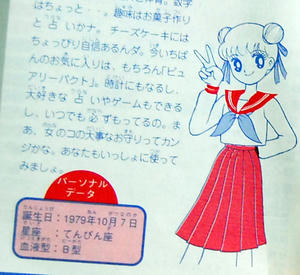 はちょっと…。趣味はお菓子作り
と占いかナ。チーズケーキには
ちょっぴり自信あるんダ。今いちば
んのお気に入りは、もちろん「ピュ
アリーパクト」。時計にもなるし、
大好きな占いやゲームもできる
し、いつでも必ずもってるの。ま
あ、女のコの大事なお守りってカン
ジかな。あなたもいっしょに使って
みましょ。
パーソナル
データ
誕生日：1979年10月7日
星座：てんびん座
血液型：B型